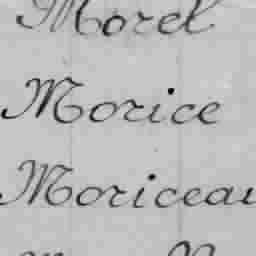 Morel
Morice
Moriceau